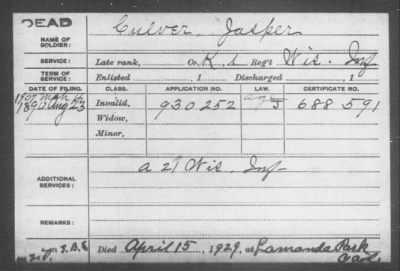 DEAD
NAME OF SOLDIER: Culver, Jasper
SERVICE: Late rank, Co. K, 1 Reg't Wis. Inf
TERM OF SERVICE: Enlisted , 1 Discharged , 1
DATE OF FILING. CLASS. APPLICATION NO. LAW. CERTIFICATE NO.
1907 Mch
1890 Aug 23 Invalid, 930 252 age 688 591
Widow,
Minor,
ADDITIONAL SERVICES: A 21 Wis. Inf
REMARKS:
Died April 15, 1929, at Lamanda Park
Cal.